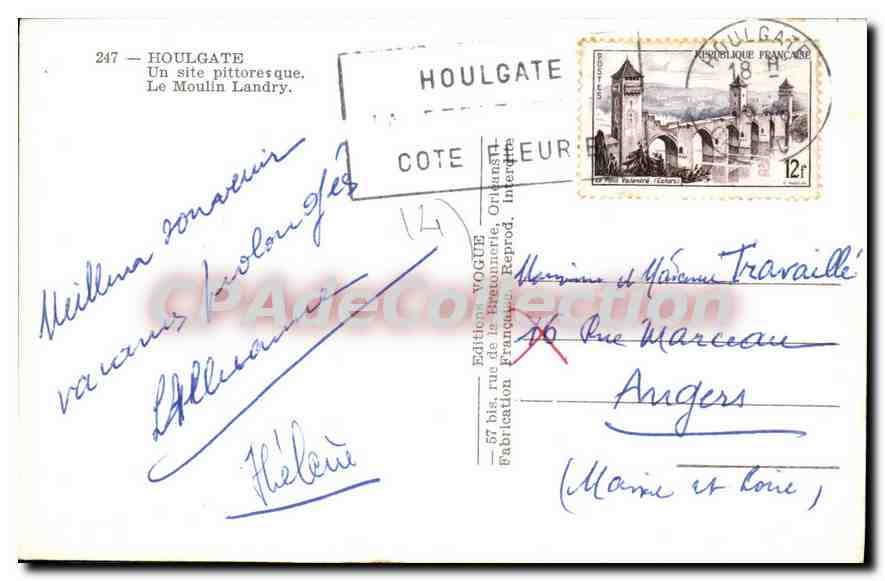 247 — HOULGATE
Un site pittoresque.
Le Moulin Landry.
HOULGATE
COTE FLEURIE
HOULGATE
18 H
REPUBLIQUE FRANÇAISE
POSTES
Le Pont Valentré (Cahors)
12F
Meilleur souvenir
vacances prolongées
Hélène
(4)
Editions VOGUE
— 57 bis, rue de la Bretonnerie, Orléans —
Fabrication Française. Reprod. interdite
Monsieur et Madame Travaillé
16 Rue Marceau
Angers
(Maine et Loire)
CPAdeCollection